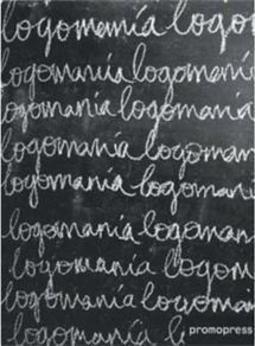 logomanía logo
logomanía logomaní
logomanía logomanía
logomanía logoman
logomanía logomaní
logomanía logoman
logomanía logom
logomanía logoma
logomanía l
promopress